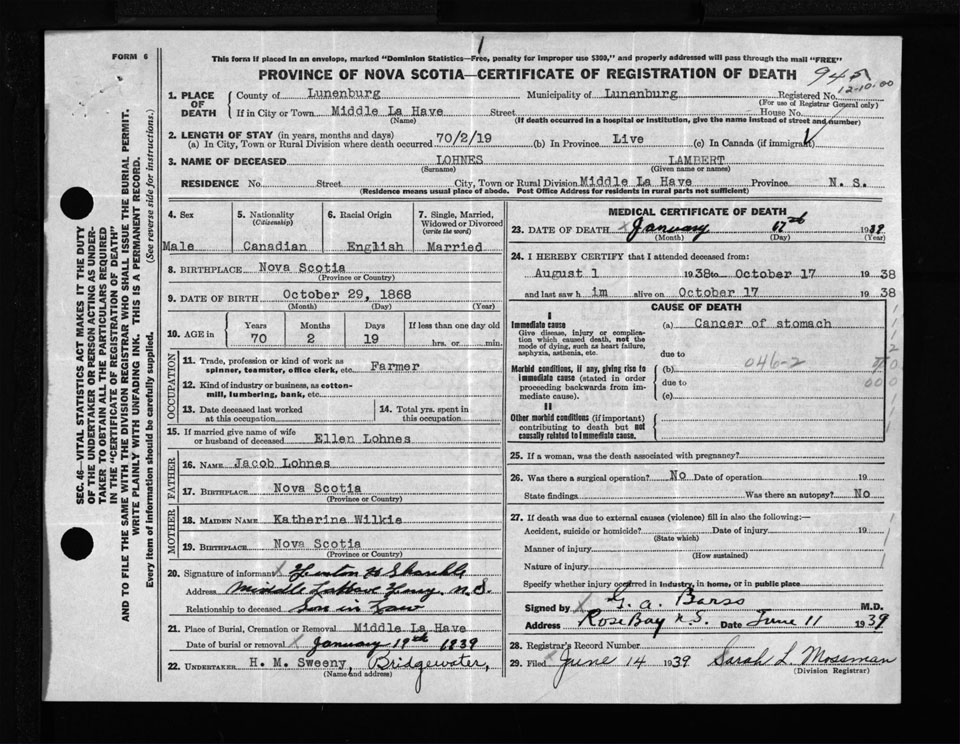 1
FORM 6
This form if placed in an envelope, marked "Dominion Statistics—Free, penalty for improper use $300," and properly addressed will pass through the mail "FREE"
PROVINCE OF NOVA SCOTIA—CERTIFICATE OF REGISTRATION OF DEATH 945
12-10.00
1. PLACE OF DEATH
County of Lunenburg Municipality of Lunenburg Registered No.
(For use of Registrar General only)
If in City or Town Middle La Have Street House No.
(Name) (If death occurred in a hospital or institution, give the name instead of street and number)
2. LENGTH OF STAY (in years, months and days)
(a) In City, Town or Rural Division where death occurred 70/2/19 (b) In Province Live (c) In Canada (if immigrant)
3. NAME OF DECEASED LOHNES LAMBERT
(Surname) (Given name or names)
RESIDENCE No. Street City, Town or Rural Division Middle La Have Province N. S.
(Residence means usual place of abode. Post Office Address for residents in rural parts not sufficient)
4. Sex
Male
5. Nationality
(Citizenship)
Canadian
6. Racial Origin
English
7. Single, Married, Widowed or Divorced
(write the word)
Married
8. BIRTHPLACE Nova Scotia
(Province or Country)
9. DATE OF BIRTH October 29, 1868
(Month) (Day) (Year)
10. AGE in
Years Months Days If less than one day old
70 2 19 hrs. or min.
OCCUPATION
11. Trade, profession or kind of work as
spinner, teamster, office clerk, etc. Farmer
12. Kind of industry or business, as cotton-
mill, lumbering, bank, etc.
13. Date deceased last worked
at this occupation
14. Total yrs. spent in
this occupation
15. If married give name of wife
or husband of deceased Ellen Lohnes
FATHER
16. NAME Jacob Lohnes
17. BIRTHPLACE Nova Scotia
(Province or Country)
MOTHER
18. MAIDEN NAME Katherine Wilkie
19. BIRTHPLACE Nova Scotia
(Province or Country)
20. Signature of informant
Address Middle LaHave Ferry, N.S.
Relationship to deceased Son in Law
21. Place of Burial, Cremation or Removal Middle La Have
Date of burial or removal X January 19th 1939
22. UNDERTAKER H. M. Sweeny, Bridgewater,
(Name and address)
MEDICAL CERTIFICATE OF DEATH
23. DATE OF DEATH X January 17th 1939
(Month) (Day) (Year)
24. I HEREBY CERTIFY that I attended deceased from:
August 1 1938 to October 17 1938
and last saw him alive on October 17 1938
CAUSE OF DEATH
I
Immediate cause
Give disease, injury or complica-
tion which caused death, not the
mode of dying, such as heart failure,
asphyxia, asthenia, etc.
(a) Cancer of stomach
due to
Morbid conditions, if any, giving rise to
immediate cause (stated in order
proceeding backwards from im-
mediate cause).
(b) 046-2
due to
(c)
II
Other morbid conditions (if important)
contributing to death but not
causally related to immediate cause.
25. If a woman, was the death associated with pregnancy?
26. Was there a surgical operation? No Date of operation 19
State findings Was there an autopsy? No
27. If death was due to external causes (violence) fill in also the following:—
Accident, suicide or homicide? Date of injury 19
(State which)
Manner of injury
(How sustained)
Nature of injury
Specify whether injury occurred in industry, in home, or in public place
Signed by X G. A. Barss M.D.
Address Rose Bay N.S. Date June 11 1939
28. Registrar's Record Number
29. Filed June 14 1939 Sarah L. Mossman
(Division Registrar)
SEC. 46—VITAL STATISTICS ACT MAKES IT THE DUTY
OF THE UNDERTAKER OR PERSON ACTING AS UNDER-
TAKER TO OBTAIN ALL THE PARTICULARS REQUIRED
IN THE "CERTIFICATE OF REGISTRATION OF DEATH"
AND TO FILE THE SAME WITH THE DIVISION REGISTRAR WHO SHALL ISSUE THE BURIAL PERMIT.
WRITE PLAINLY WITH UNFADING INK. THIS IS A PERMANENT RECORD.
Every item of information should be carefully supplied. (See reverse side for instructions.)